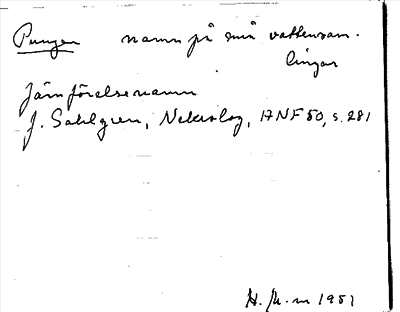 Pungen namn på små vattensam-
lingar
Jämförelsenamn
J. Sahlgren, Nekrolog, ANF 50, s. 281
H. M-m 1951